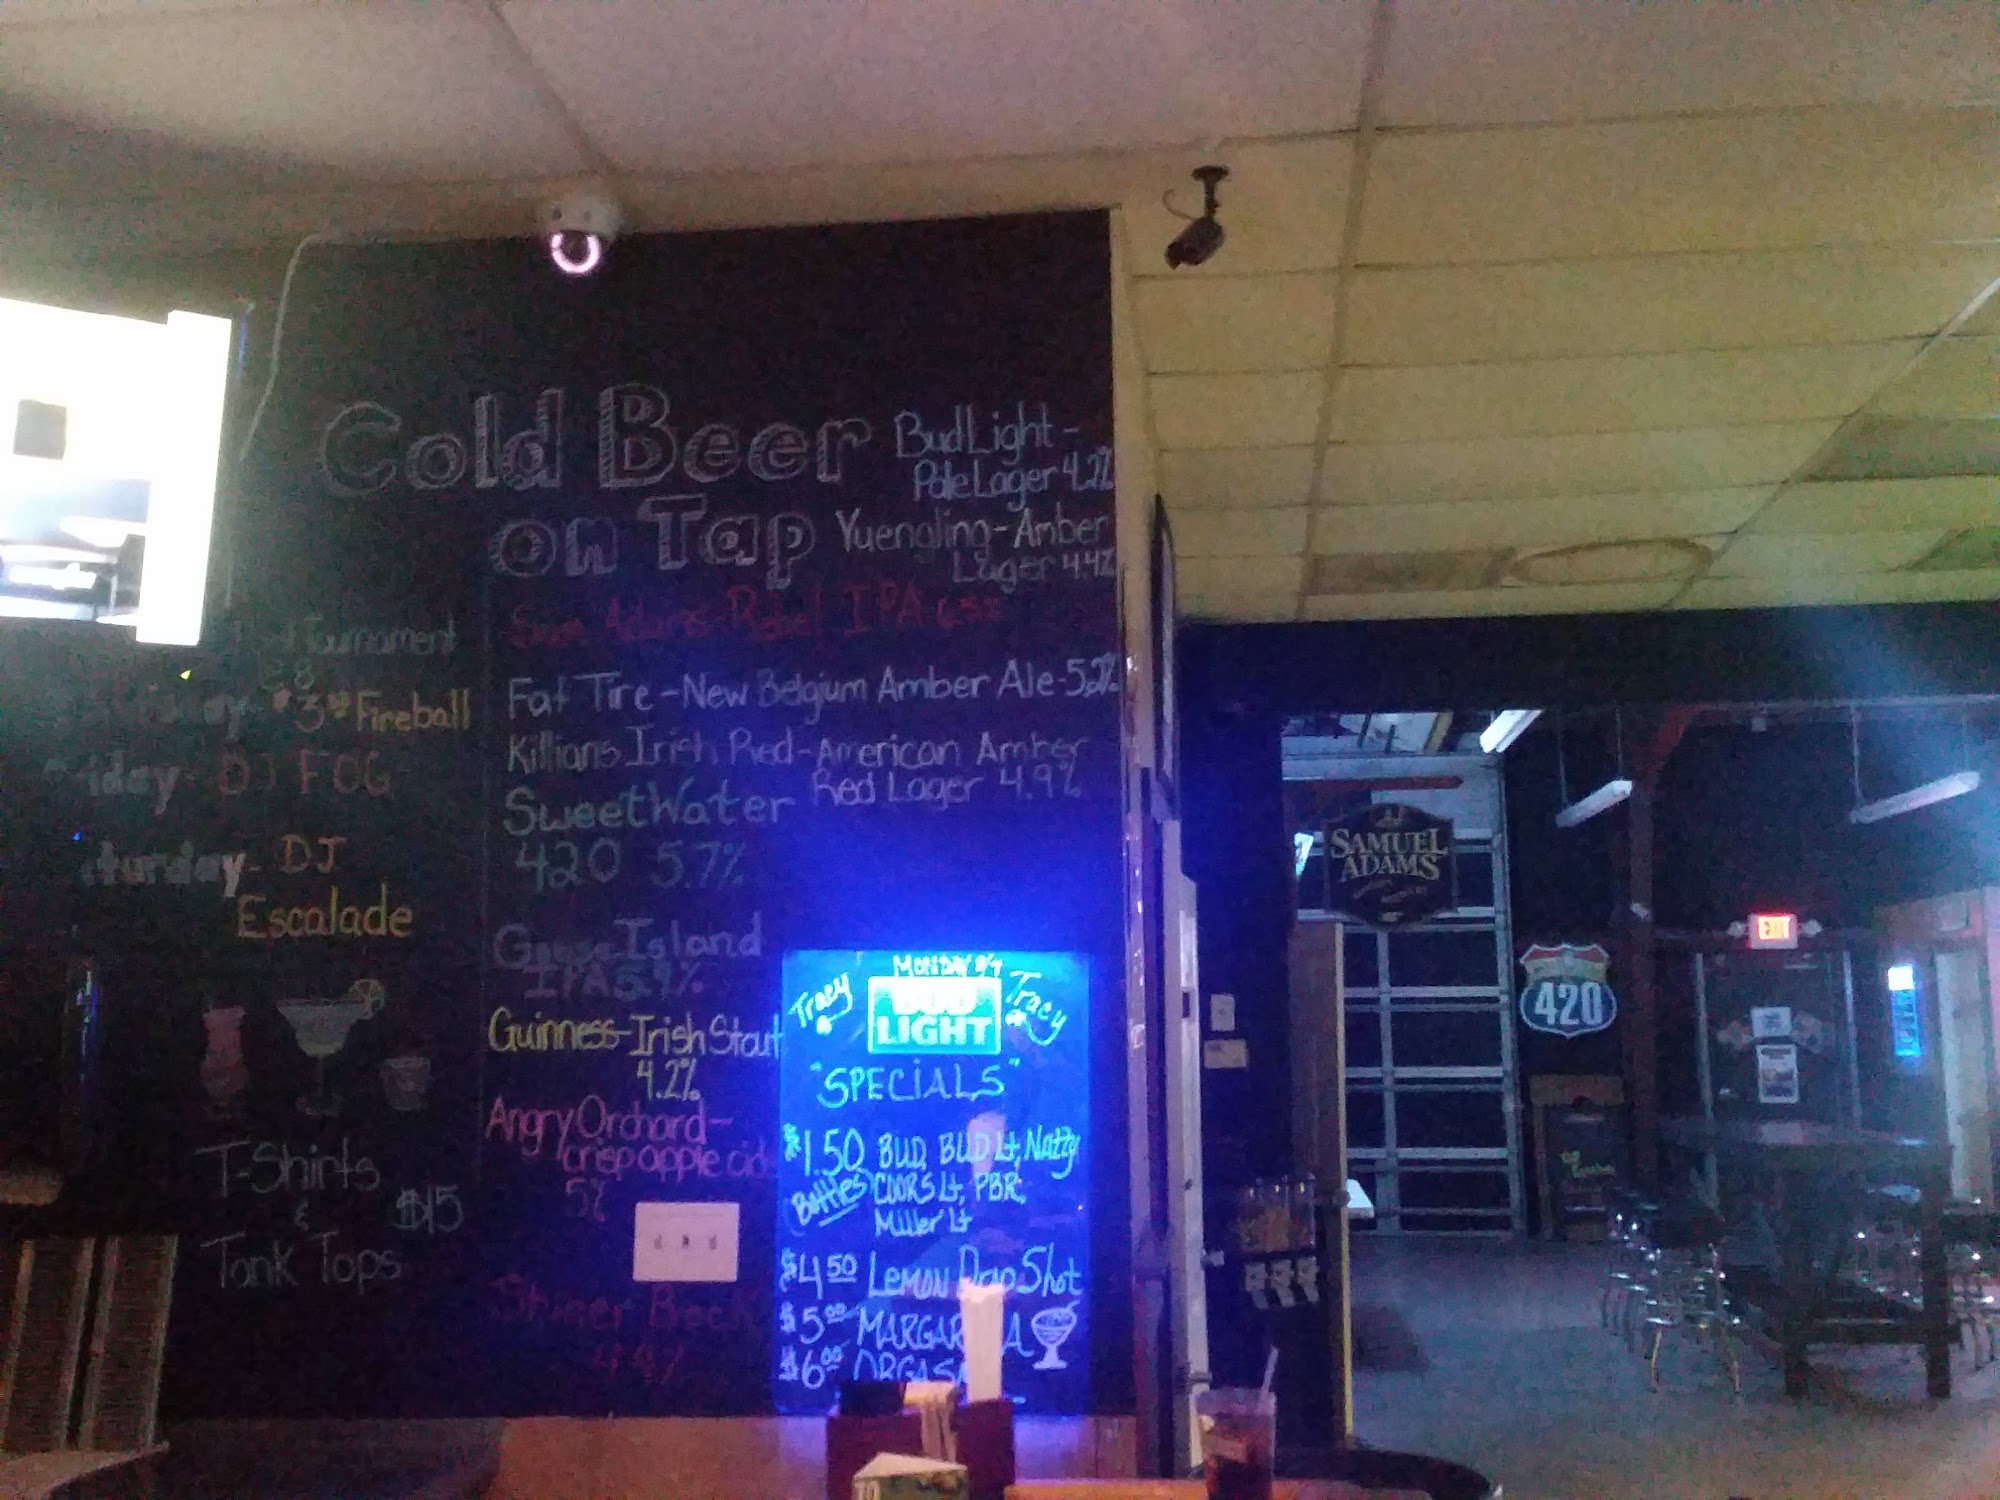 Cold Beer
on Tap
Bud Light -
Pale Lager 4.2%
Yuengling - Amber
Lager 4.4%
Sam Adams - Rebel IPA 6.5%
Fat Tire - New Belgium Amber Ale - 5.2%
Killians Irish Red - American Amber
Red Lager 4.9%
SweetWater
420 5.7%
Goose Island
IPA 5.9%
Guinness - Irish Stout
4.2%
Angry Orchard -
crisp apple cid
5%
Shiner Bock
4.4%
Tournament
$3 Fireball
riday - DJ FOG
turday - DJ
Escalade
T-Shirts
&
Tank Tops
$15
MONDAY
Tracy
BUD
LIGHT
Tracy
"SPECIALS"
$1.50 BUD, BUD Lt, Natty
Bottles COORS Lt, PBR,
Miller Lt
$4.50 LEMON DROP Shot
$5.00 MARGARITA
$6.00 ORGAS
SAMUEL
ADAMS
420
EXIT